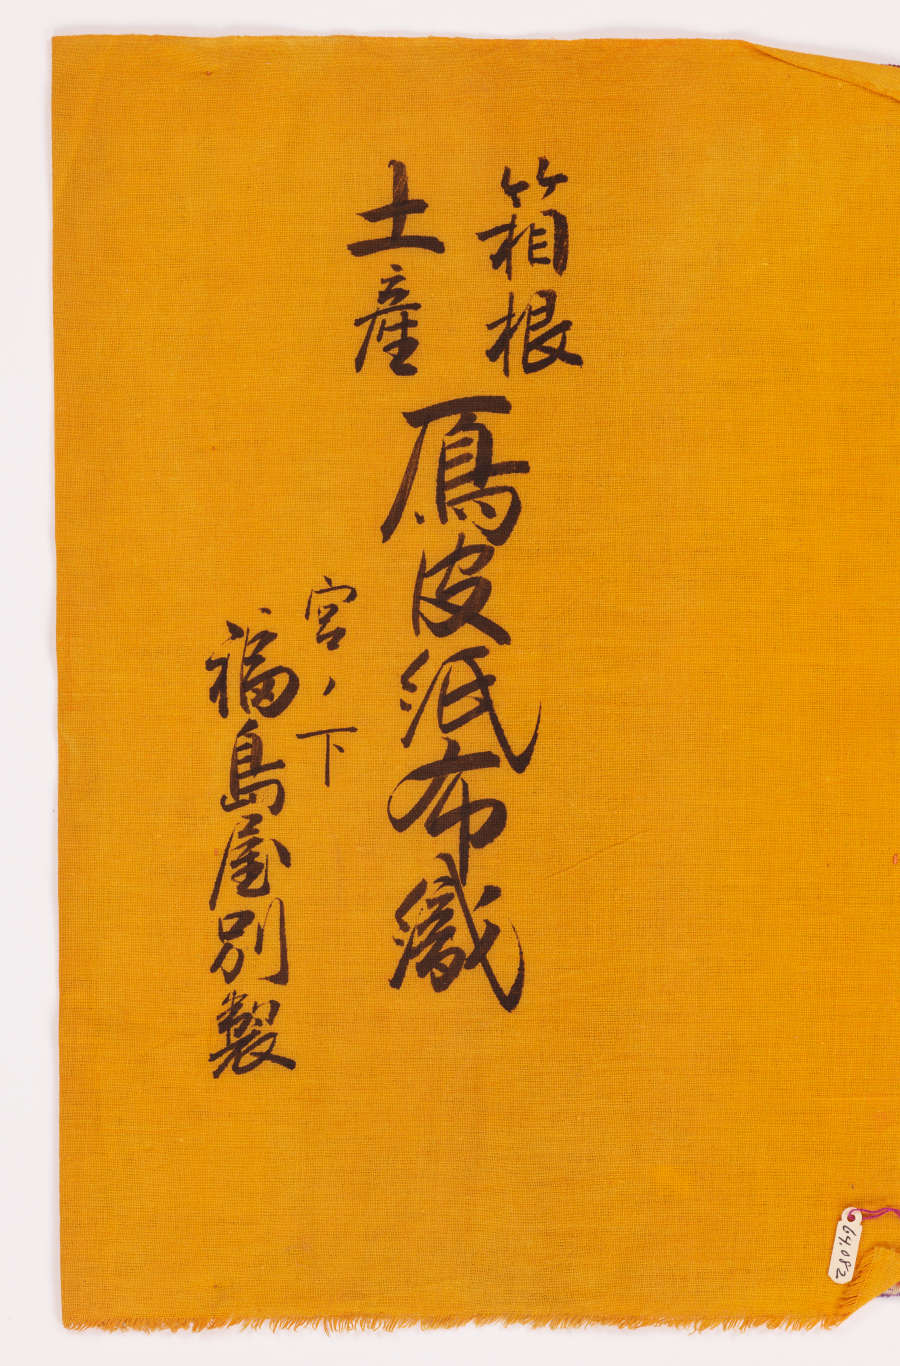 箱根
土産
鴈皮紙布織
宮ノ下
福島屋別製
64.082